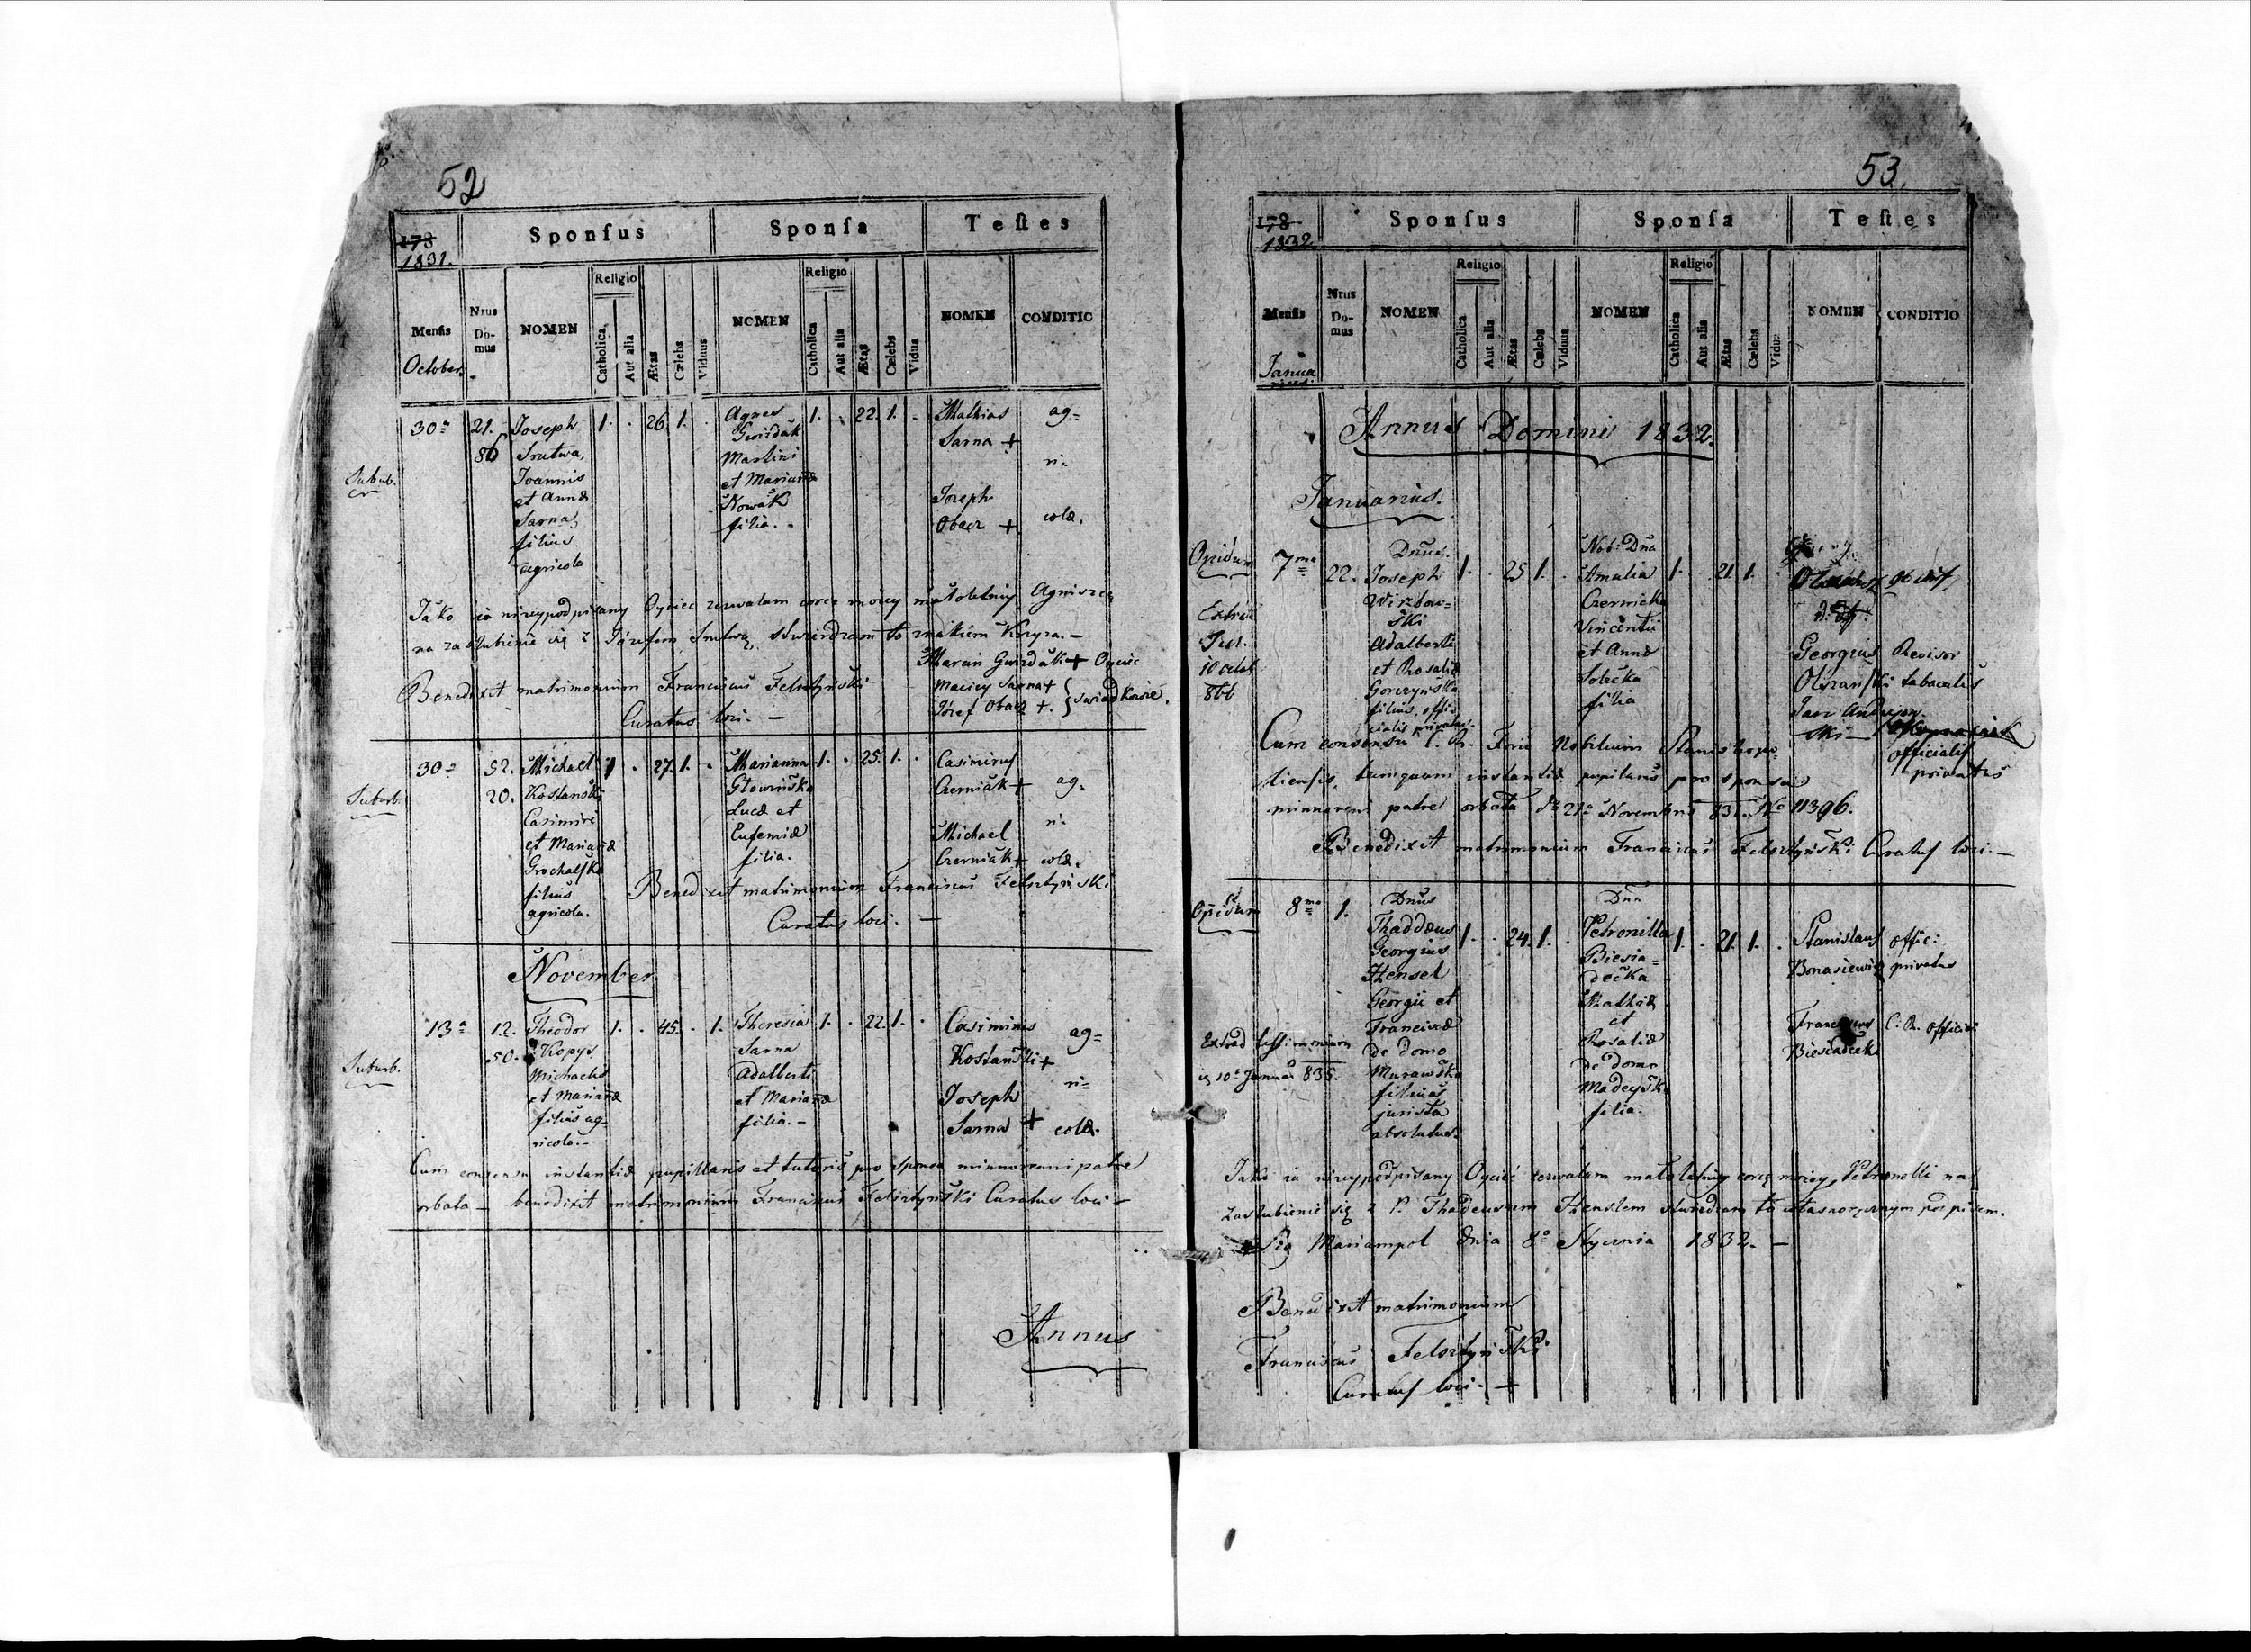 52
178
1831.
Sponsus
Sponsa
Testes
Mensis
October.
Nrus
Do-
mus
NOMEN
Religio
Catholica
Aut alia
Ætas
Cælebs
Viduus
NOMEN
Religio
Catholica
Aut alia
Ætas
Cælebs
Vidua
NOMEN
CONDITIO
Subub.
30a
21.
86
Joseph
Srutwa,
Joannis
et Annæ
Sarna,
filius
agricola
1. . 26. 1. .
Agnes
Gwizdak
Martini
et Mariannæ
Nowak
filia.
1. . 22. 1. .
Mathias
Sarna +
Joseph
Obacz +
ag=
ri=
colæ.
Jako ja niżeypodpisany Oyciec zezwalam corce moiey małoletniy Agniszce
na zaślubienie się z Józefem Srutwą, stwierdzam to znakiem Krzyża.—
Marcin Gwizdak + Oyciec
Maciey Sarna +
Józef Obacz +. } świadkowie.
Benedixit matrimonium Franciscus Felsztyński
Curatus loci. —
Suburb.
30a
52.
20.
Michael
Kostański
Casimiri
et Mariannæ
Grochalska
filius
agricola.
1 . 27. 1. .
Marianna
Głowińska
Lucæ et
Eufemiæ
filia.
1. . 25. 1. .
Casimirus
Czerniak +
Michael
Czerniak +
ag=
ri=
colæ.
Benedixit matrimonium Franciscus Felsztyński
Curatus loci. —
November
Suburb.
13a
12.
50.
Theodor
Kopys
Michaelis
et Mariannæ
filius ag-
ricola.—
1. . 45. . 1.
Theresia
Sarna
Adalberti
et Mariannæ
filia.—
1. . 22. 1. .
Casimirus
Kostański +
Joseph
Sarna +
ag=
ri=
colæ.
Cum consensu instantiæ pupillaris et tutoris pro sponsa minorenni patre
orbata — benedixit matrimonium Franciscus Felsztyński Curatus loci —
Annus
53.
178
1832.
Sponsus
Sponsa
Testes
Mensis
Janua
rius.
Nrus
Do-
mus
NOMEN
Religio
Catholica
Aut alia
Ætas
Cælebs
Viduus
NOMEN
Religio
Catholica
Aut alia
Ætas
Cælebs
Vidua
NOMEN
CONDITIO
Annus Domini 1832.
Januarius.
Opidum
7ma
22.
Dnus
Joseph
Wirzbow=
ski
Adalberti
et Rosaliæ
Gorczyńska
filius, offi-
cialis privatus.
1. . 25 1. .
Nob: Dna
Amalia
Czernicka
Vincentii
et Annæ
Solecka
filia
1. . 21. 1. .
Georgius
Olszański
Jan
ski —
Revisor
tabacalis
officialis
privatus
Extrad
Test.
10
866
Cum consensu C. R. Fori Nobilium Stanislopo-
liensis, tamquam instantiæ pupilaris pro sponsa
minoreni patre orbata dto 21a Novembris 831. No 11396.
Benedixit matrimonium Franciscus Felsztyński Curatus loci —
Opidum
8ma
1.
Dnus
Thaddæus
Georgius
Hensel
Georgii et
Franciscæ
de domo
Murawska
filius
jurista
absolutus.
1. . 24. 1. .
Dna
Petronilla
Biesia=
decka
Mathiæ
et
Rosaliæ
de domo
Madeyska
filia.
1. . 21. 1. .
Stanislaus
Bonasiewicz
offic:
privatus
Franciscus
Biesiadecki
C: R. offici
Extrad testimonium
10a Januar 835.
Jako ja niżeypodpisany Oyciec zezwalam małoletniey corce moiey Petronelli na
zaslubienie się z P. Thadeuszem Henslem stwirdzam to własnoręcznym podpisem.
Sig Mariampol dnia 8o Stycznia 1832. —
Benedixit matrimonium
Franciscus Felsztyński
Curatus loci. —